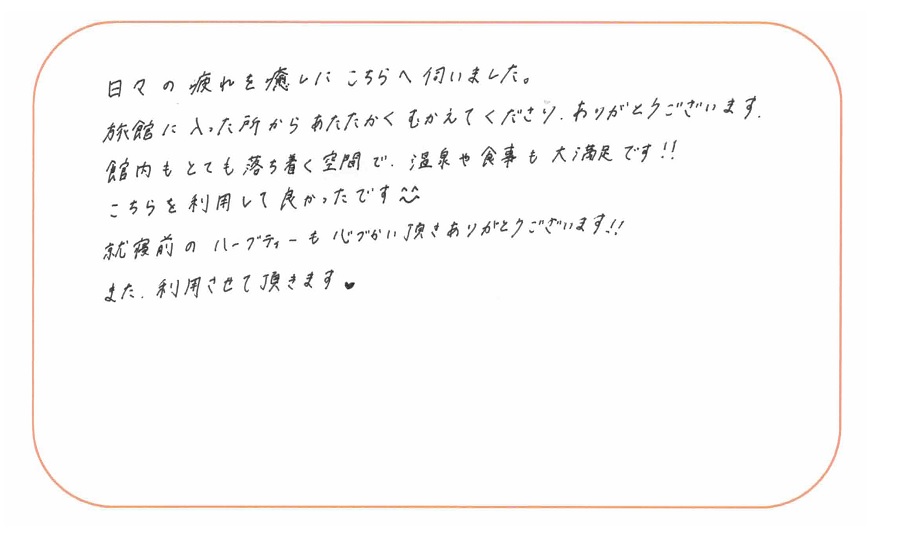 日々の疲れを癒しにこちらへ伺いました。
旅館に入った所からあたたかくむかえてくださり、ありがとうございます。
館内もとても落ち着く空間で、温泉や食事も大満足です!!
こちらを利用して良かったです^^
就寝前のハーブティーも心づかい頂きありがとうございます!!
また、利用させて頂きます♥